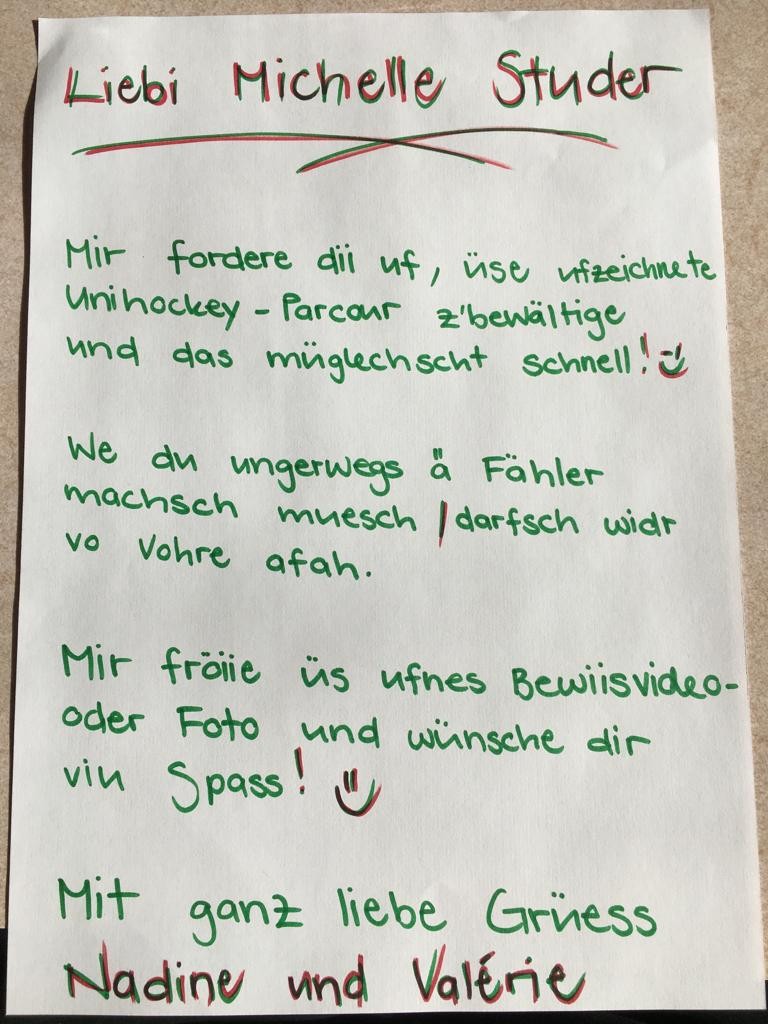 Liebi Michelle Studer
Mir fordere dii uf, üse ufzeichnete
Unihockey - Parcour z'bewältige
und das müglechscht schnell!
We du ungerwegs ä Fähler
machsch muesch / darfsch widr
vo Vohre afah.
Mir fröiie üs ufnes Bewiisvideo-
oder Foto und wünsche dir
viu Spass!
Mit ganz liebe Grüess
Nadine und Valérie